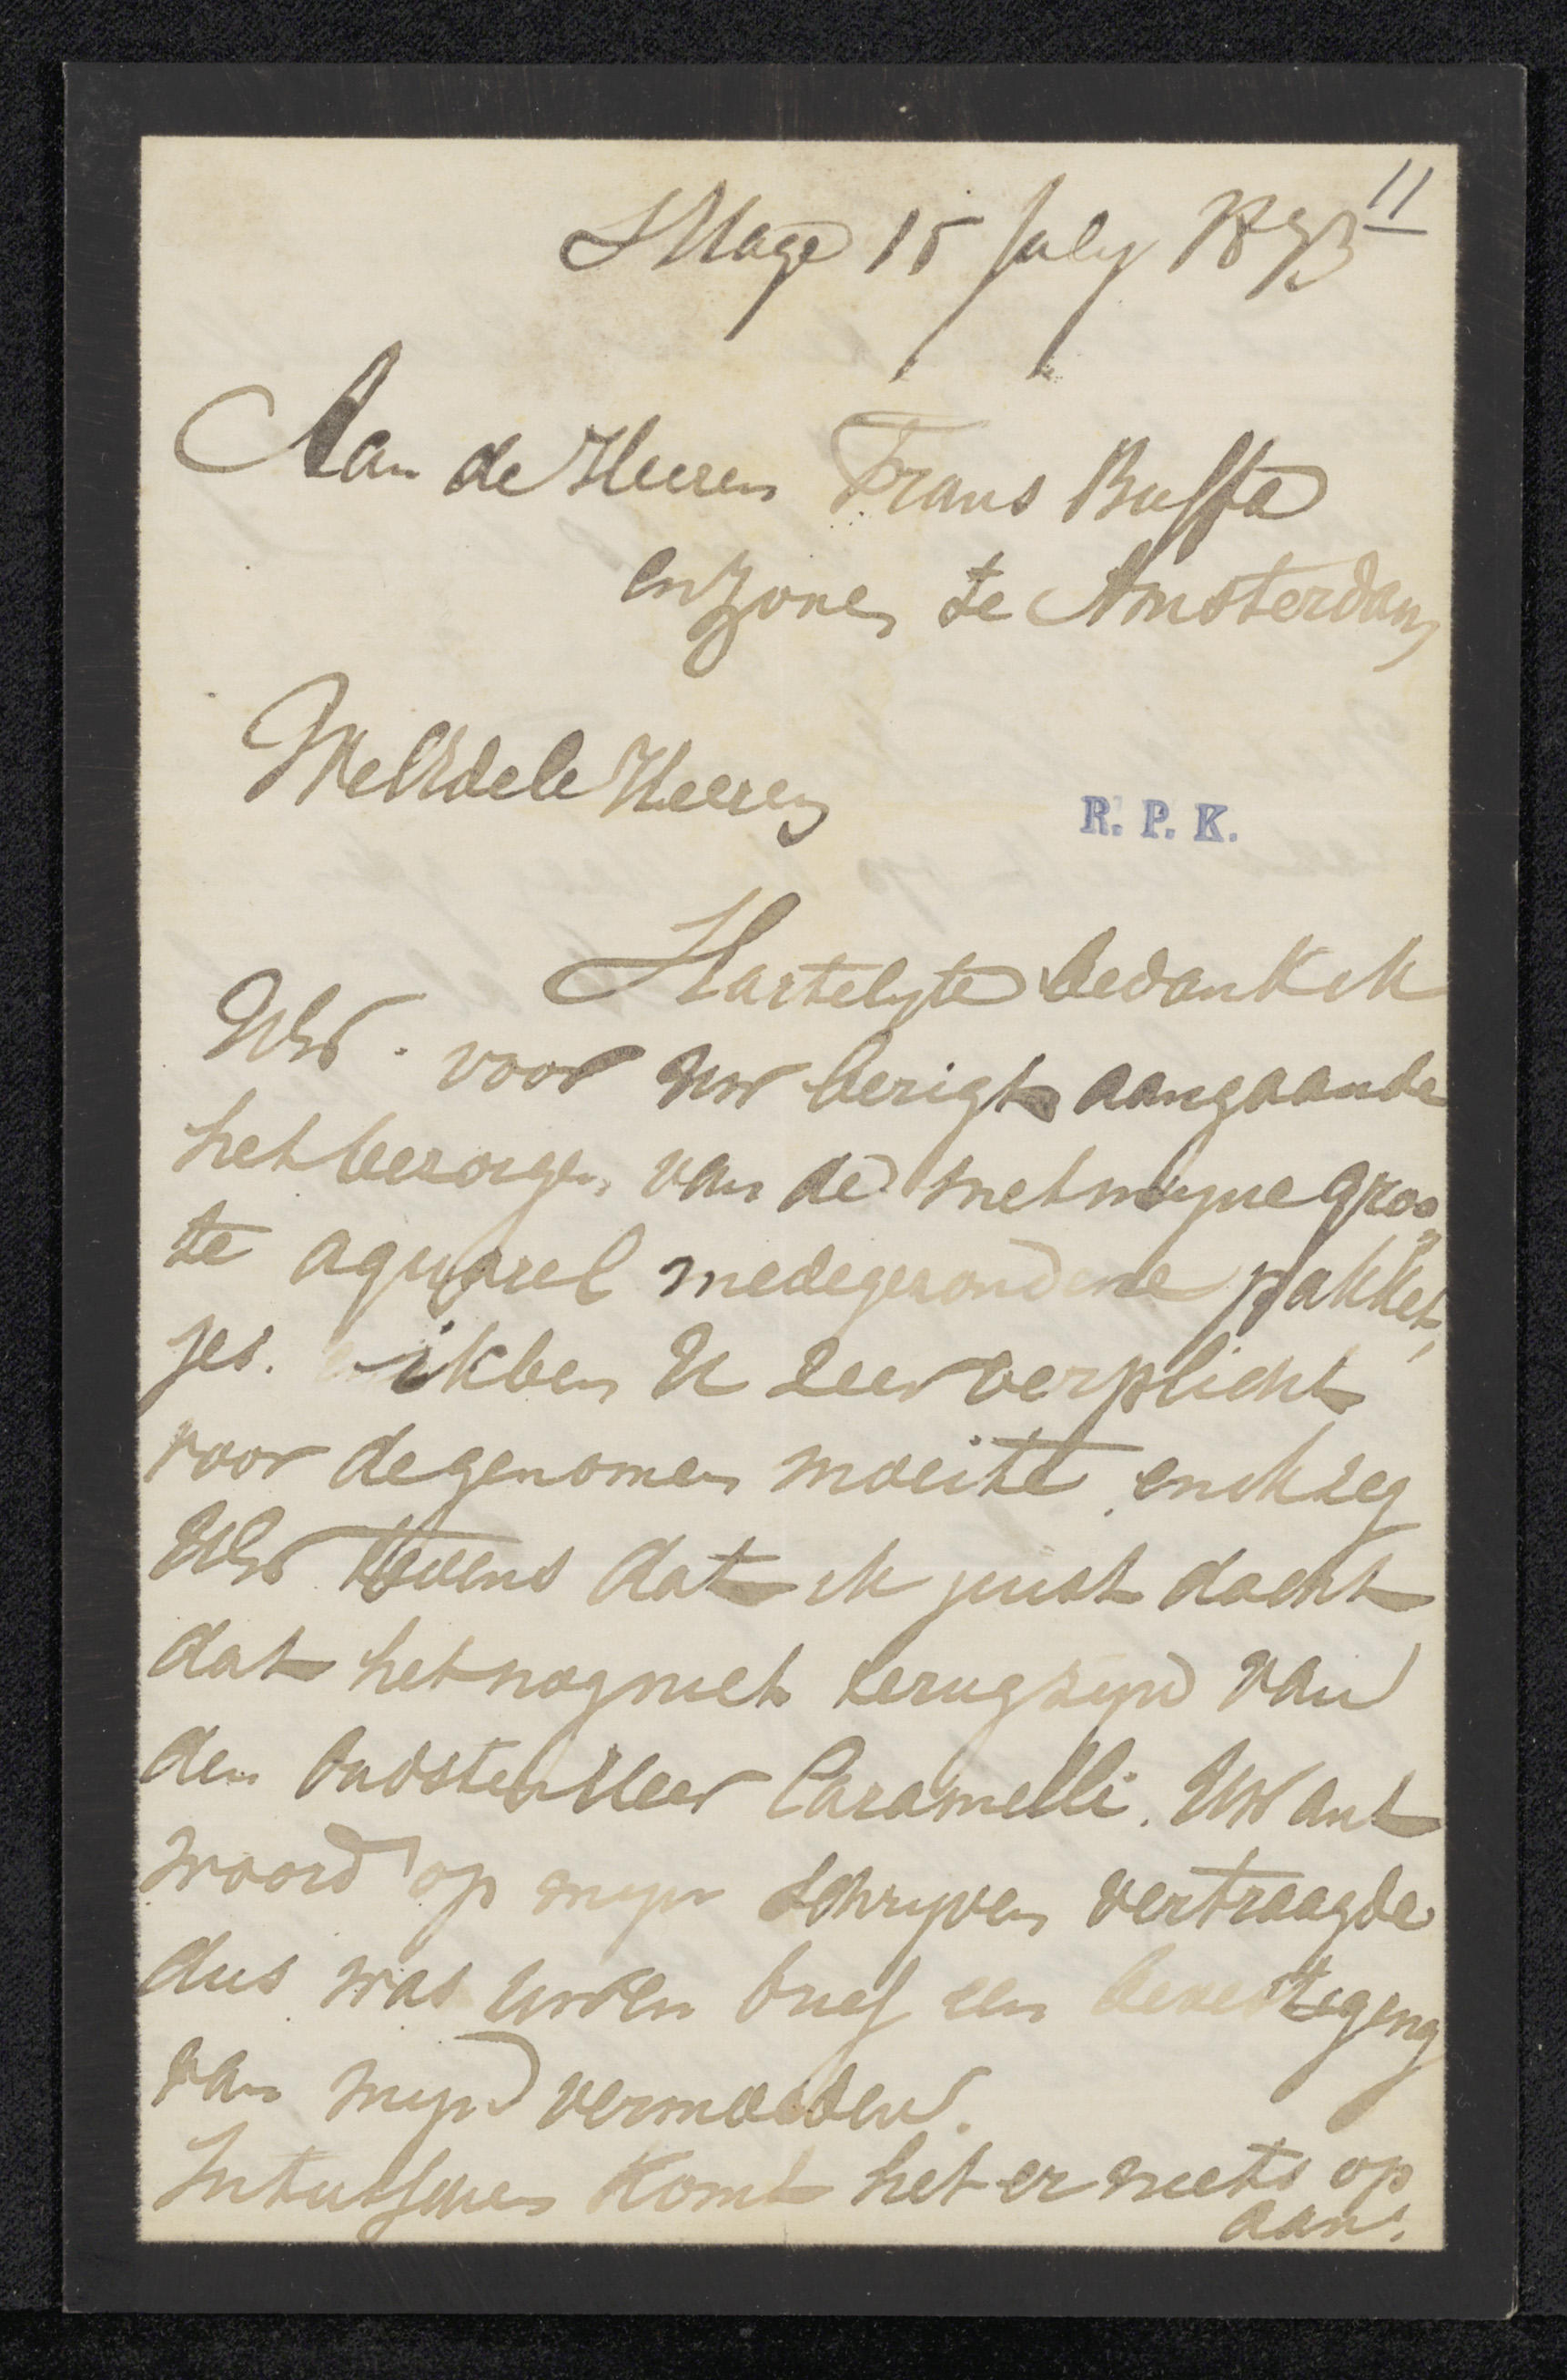 11
S'Hage 15 July 1893
Aan de Heeren Frans Buffa
en zonen te Amsterdam
WelEdele Heeren
R. P. K.
Hartelyke bedank ik
UEd. voor uw berigt aangaande
het bezorgen van de met myne groo„
te aquarel medegezondene pakket„
jes. ik ben U zeer verplicht
voor de genomen moeite en ik zeg
UEd tevens dat ik juist dacht
dat het nog niet terug zyn van
den oudsten Heer Caramelli. Uw ant
woord op myn schryven vertraagde
dus was uwen brief een bevestiging
van myn vermoeden.
Intusschen komt het er niets op
aan.